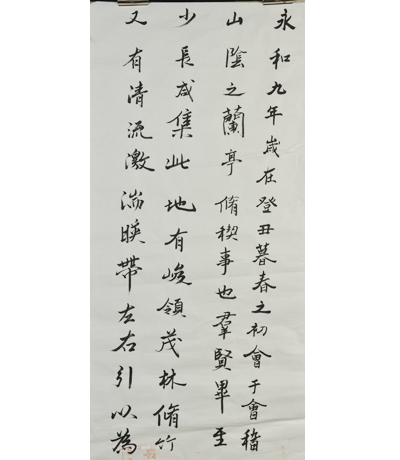 永和九年歲在癸丑暮春之初會于會稽
山陰之蘭亭脩稧事也羣賢畢至
少長咸集此地有峻領茂林脩竹
又有清流激湍暎帶左右引以為